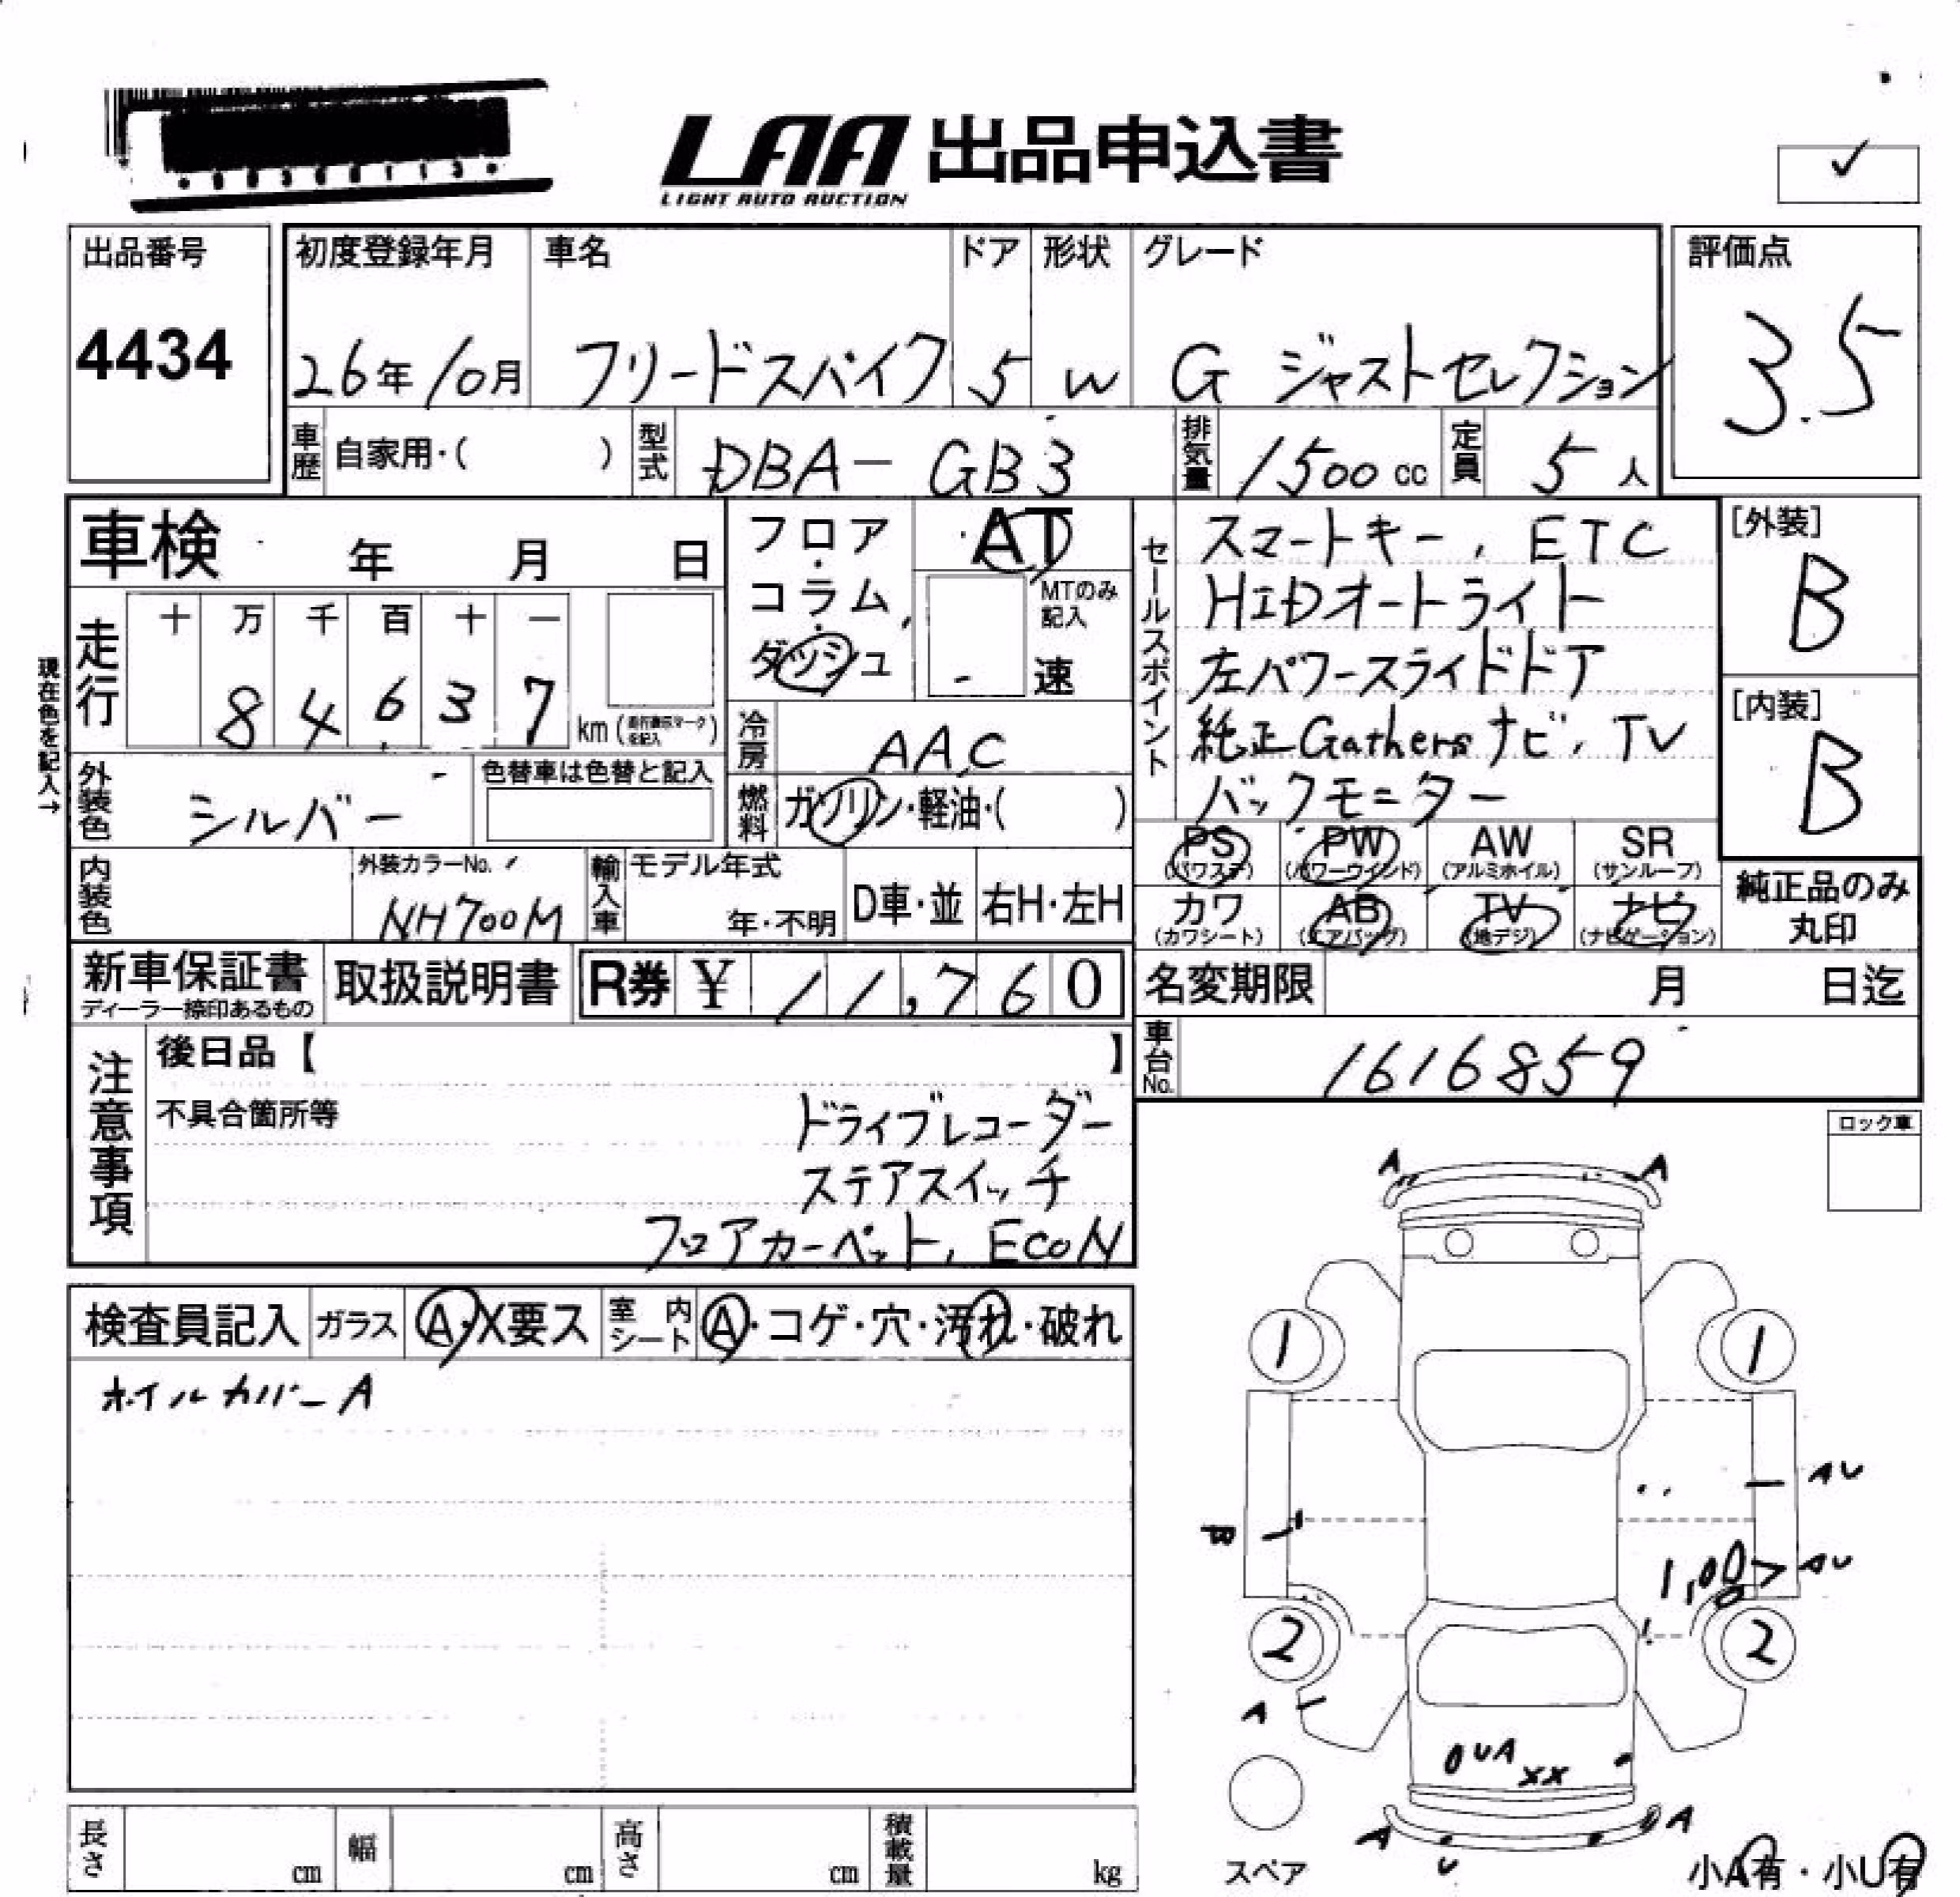 LAA 出品申込書
LIGHT AUTO AUCTION
✓
出品番号
4434
初度登録年月
26年10月
車名
フリードスパイク
ドア
5
形状
W
グレード
G ジャストセレクション
評価点
3.5
車歴
自家用・( )
型式
DBA-GB3
排気量
1500cc
定員
5人
車検 年 月 日
フロア・コラム・ダッシュ
AT
MTのみ記入
速
セールスポイント
スマートキー, ETC
HIDオートライト
左パワースライドドア
純正Gathersナビ, TV
バックモニター
[外装]
B
[内装]
B
現在色を記入→
走行
十 万 千 百 十 一
8 4 6 3 7
km
冷房
AAC
外装色
シルバー
色替車は色替と記入
燃料
ガソリン・軽油・( )
PS
(パワステ)
PW
(パワーウインド)
AW
(アルミホイル)
SR
(サンルーフ)
カワ
(カワシート)
AB
(エアバッグ)
TV
(地デジ)
ナビ
(ナビゲーション)
純正品のみ
丸印
内装色
外装カラーNo.
NH700M
輸入車
モデル年式
年・不明
D車・並
右H・左H
新車保証書
ディーラー捺印あるもの
取扱説明書
R券 ¥ 11,760
名変期限 月 日迄
車台No.
1616859
注意事項
後日品【 】
不具合箇所等
ドライブレコーダー
ステアスイッチ
フロアカーペット, ECON
ロック車
検査員記入
ガラス
A・X要ス
室内シート
A・コゲ・穴・汚れ・破れ
ホイルカバーA
A A
1 1
AU
B
AU
2 2
A
UA
XX
A A
U
スペア
小A有・小U有
長さ cm
幅 cm
高さ cm
積載量 kg